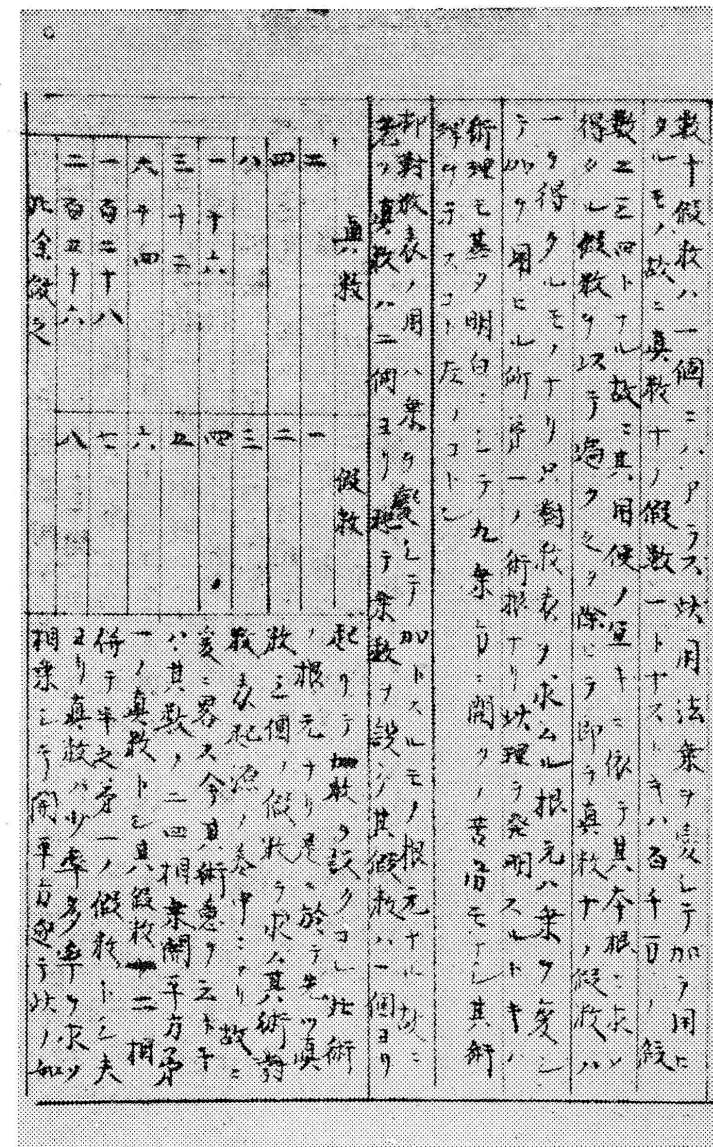 数十假数ハ一個ニハアラス此用法乗ヲ変シテ加ヲ用ヒ
タルモノ故ニ真数十ノ假数一トナストキハ百千万ノ假
数二三四トナル故ニ其用便ノ宜キニ依テ其本根ニ求メ
得タル假数ヲ以テ遍ク之ヲ除シテ即チ真数十ノ假数ハ
一ヲ得タルモノナリ只對数表ヲ求ムル根元ハ乗ヲ変シ
テ加ヲ用ヒル術第一ノ術根ナリ此理ヲ発明スルトキハ
術理モ甚タ明白ニシテ九乗ニ開クノ苦労モナシ其術
理ヲテスコト左ノコトシ
抑對数表ノ用ハ乗ヲ変シテ加トスルモノ根元ナル故ニ
先ツ真数ハ二個ヨリ起テ乗数ヲ設ク其假数ハ一個ヨリ
真数 假数
二 一
四 二
八 三
一十六 四
三十二 五
六十四 六
一百二十八 七
二百五十六 八
此余倣之
起リテ加数ヲ設クコレ此術
ノ根元ナリ是ニ於テ先ツ真
数三個ノ假数ヲ求ム其術對
数表起源ノ巻中ニアリ故ニ
爰ニ畧ス今其術意ヲ云トキ
ハ其数ノ二四相乗開平方第
一ノ真数トシ其假数一二相
併テ半之第一ノ假数トシ夫
ヨリ真数ハ少率多率ヲ求メ
相乗シテ開平方逐テ此ノ如